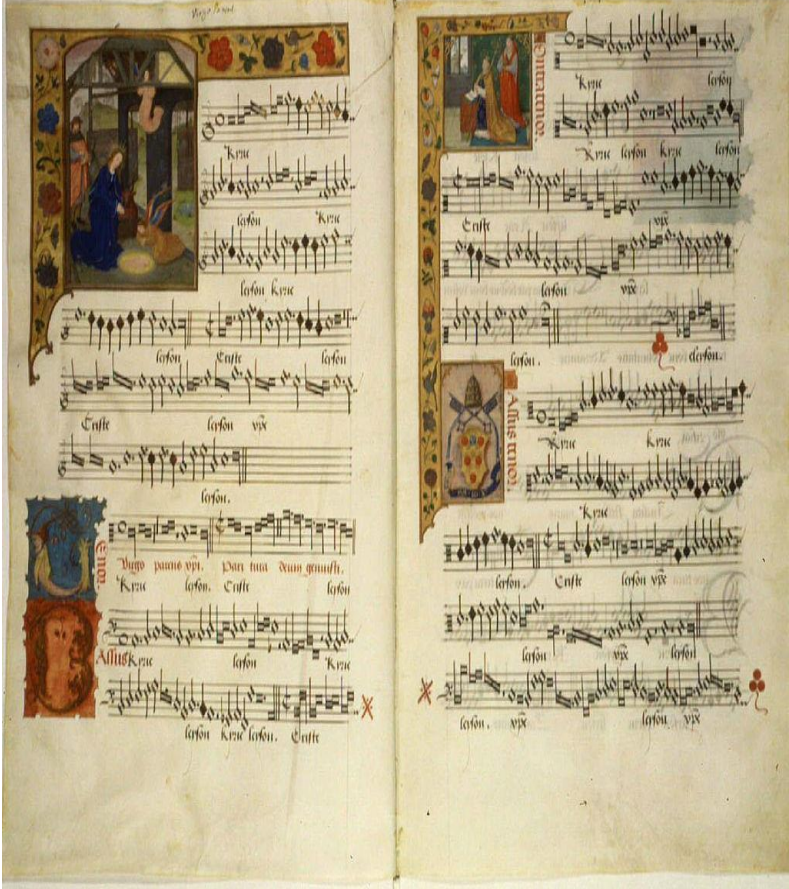 Kyrie
leyson Kyrie
leyson kyrie
leyson Criste leyson
Criste leyson xpe
leyson.
Tenor.
Virgo parens xpi. Pari tura deum genuisti.
Kyrie leyson. Criste leyson
Bassus Kyrie leyson Kyrie
leyson kyrie leyson. Criste
Contratenor
Kyrie leyson
Kyrie leyson Kyrie leyson
Criste xpe
leyson xpe
leyson. eleyson.
Bassus tenor.
Kyrie kyrie
Kyrie
leyson. Criste leyson xpe
leyson xpe leyson
leyson. xpe leyson xpe